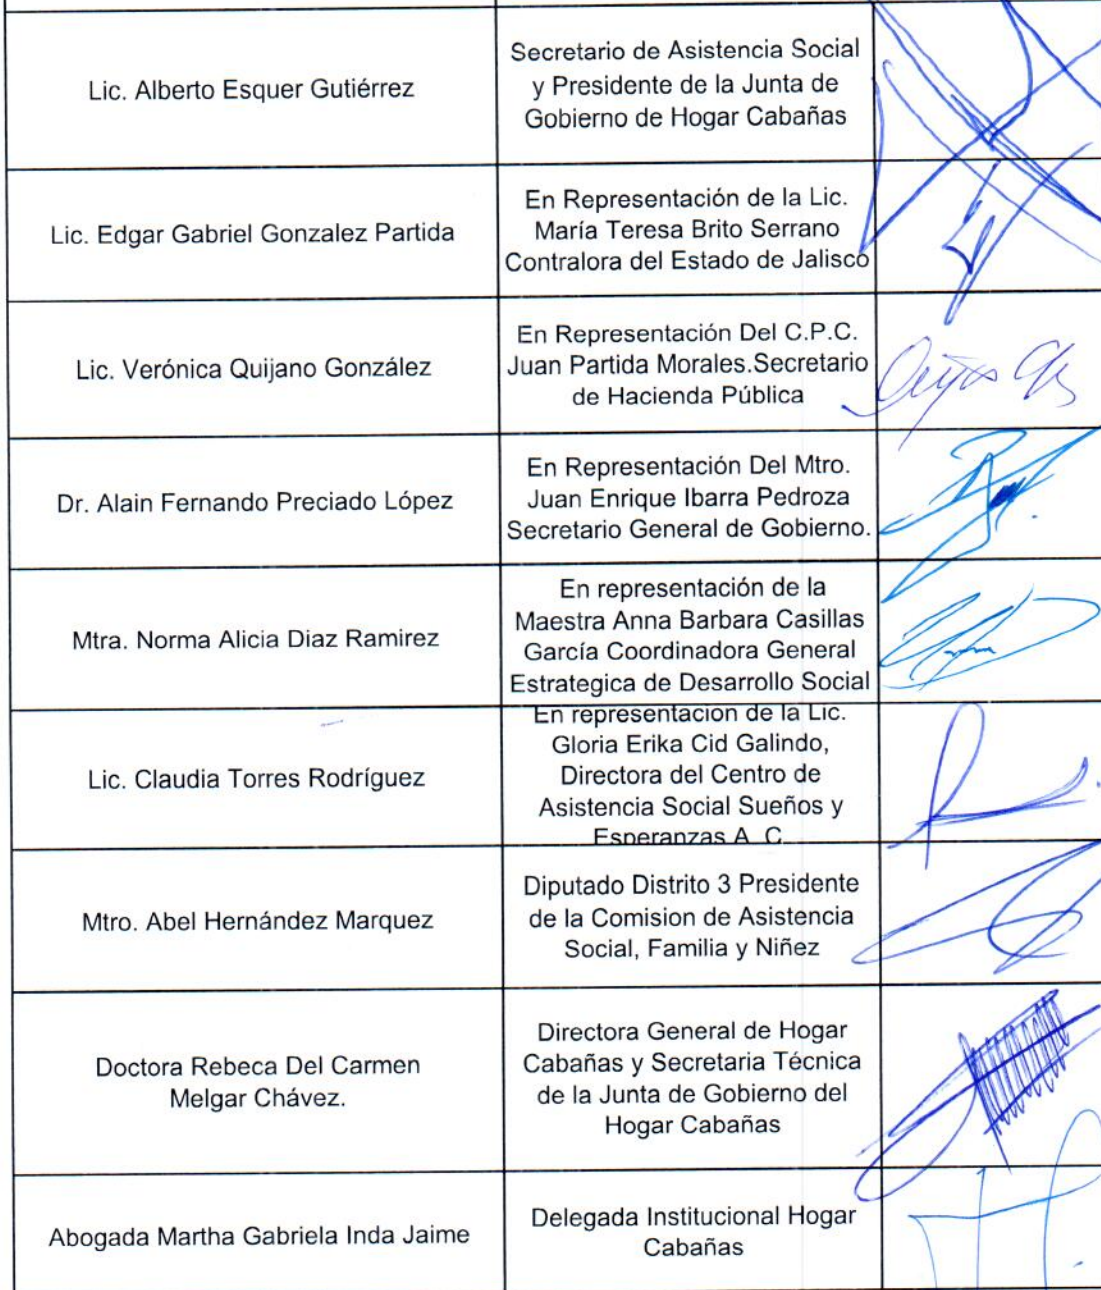 Lic. Alberto Esquer Gutiérrez
Secretario de Asistencia Social
y Presidente de la Junta de
Gobierno de Hogar Cabañas
Lic. Edgar Gabriel Gonzalez Partida
En Representación de la Lic.
María Teresa Brito Serrano
Contralora del Estado de Jalisco
Lic. Verónica Quijano González
En Representación Del C.P.C.
Juan Partida Morales.Secretario
de Hacienda Pública
Dr. Alain Fernando Preciado López
En Representación Del Mtro.
Juan Enrique Ibarra Pedroza
Secretario General de Gobierno.
Mtra. Norma Alicia Diaz Ramirez
En representación de la
Maestra Anna Barbara Casillas
García Coordinadora General
Estrategica de Desarrollo Social
Lic. Claudia Torres Rodríguez
En representacion de la Lic.
Gloria Erika Cid Galindo,
Directora del Centro de
Asistencia Social Sueños y
Esperanzas A. C.
Mtro. Abel Hernández Marquez
Diputado Distrito 3 Presidente
de la Comision de Asistencia
Social, Familia y Niñez
Doctora Rebeca Del Carmen
Melgar Chávez.
Directora General de Hogar
Cabañas y Secretaria Técnica
de la Junta de Gobierno del
Hogar Cabañas
Abogada Martha Gabriela Inda Jaime
Delegada Institucional Hogar
Cabañas